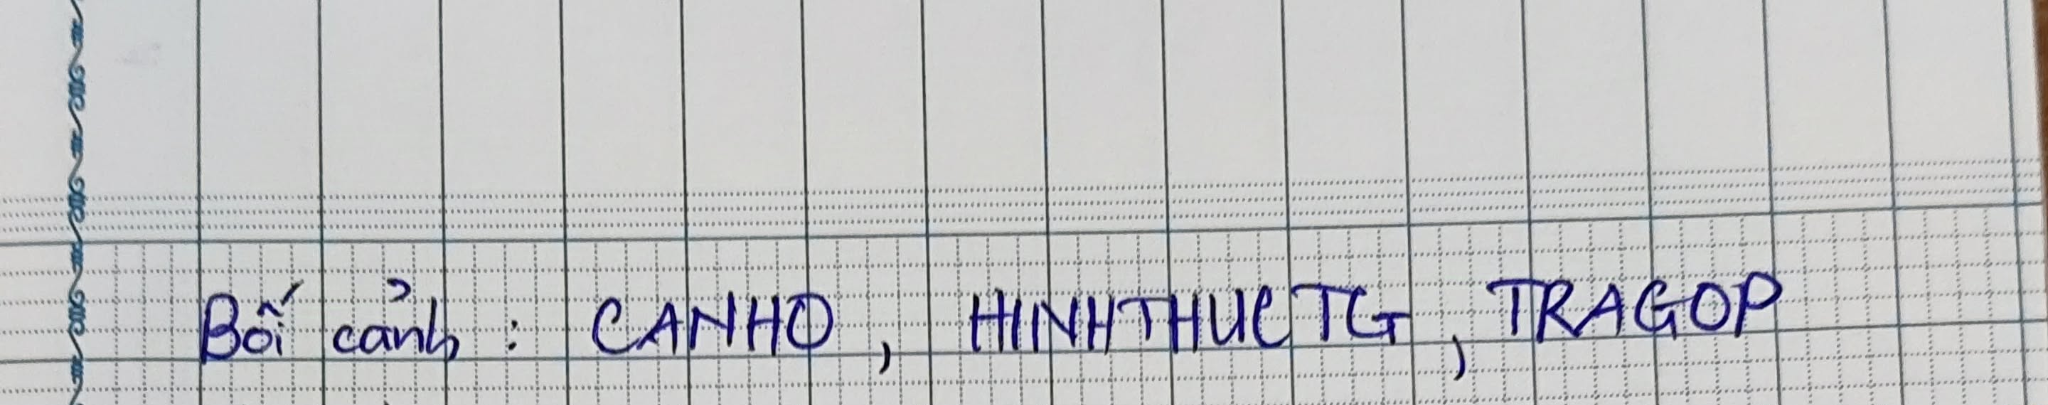 Bối cảnh : CANHO, HINHTHUCTG, TRAGOP